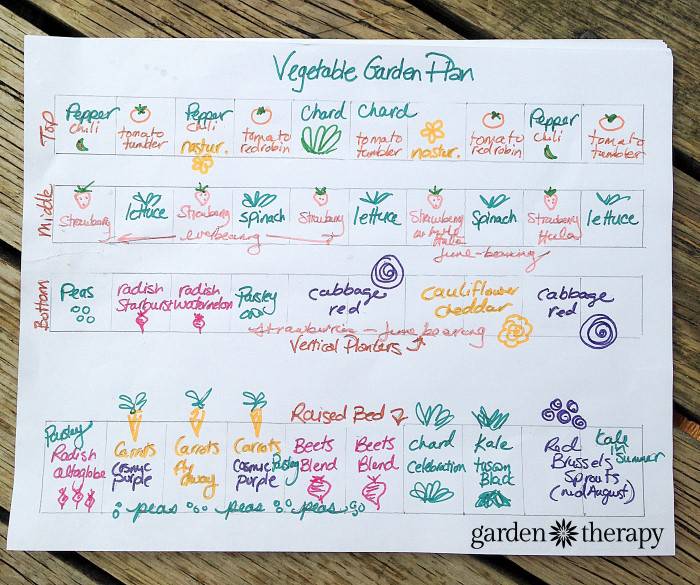 Vegetable Garden Plan
Top
Pepper Pepper Chard Chard Pepper
chili chili chili
tomato tumbler tomato redrobin tomato tumbler tomato redrobin tomato tumbler
nastur. nastur.
Middle
Strawberry lettuce Strawberry Spinach Strawberry lettuce Strawberry Spinach Strawberry lettuce
Hula
everbearing
June-bearing
Bottom
Peas radish radish Parsley cabbage cauliflower cabbage
Starburst watermelon red cheddar red
Strawberries - June bearing
Vertical Planters
Raised Bed
Parsley
Radish Carrots Carrots Carrots Beets Beets Chard Kale Red Kale in
altaglobe Cosmic Fly Cosmic Parsley Blend Blend Celebration tuscan Brussels Summer
purple away purple Black Sprouts
(mid August)
peas peas peas
garden therapy